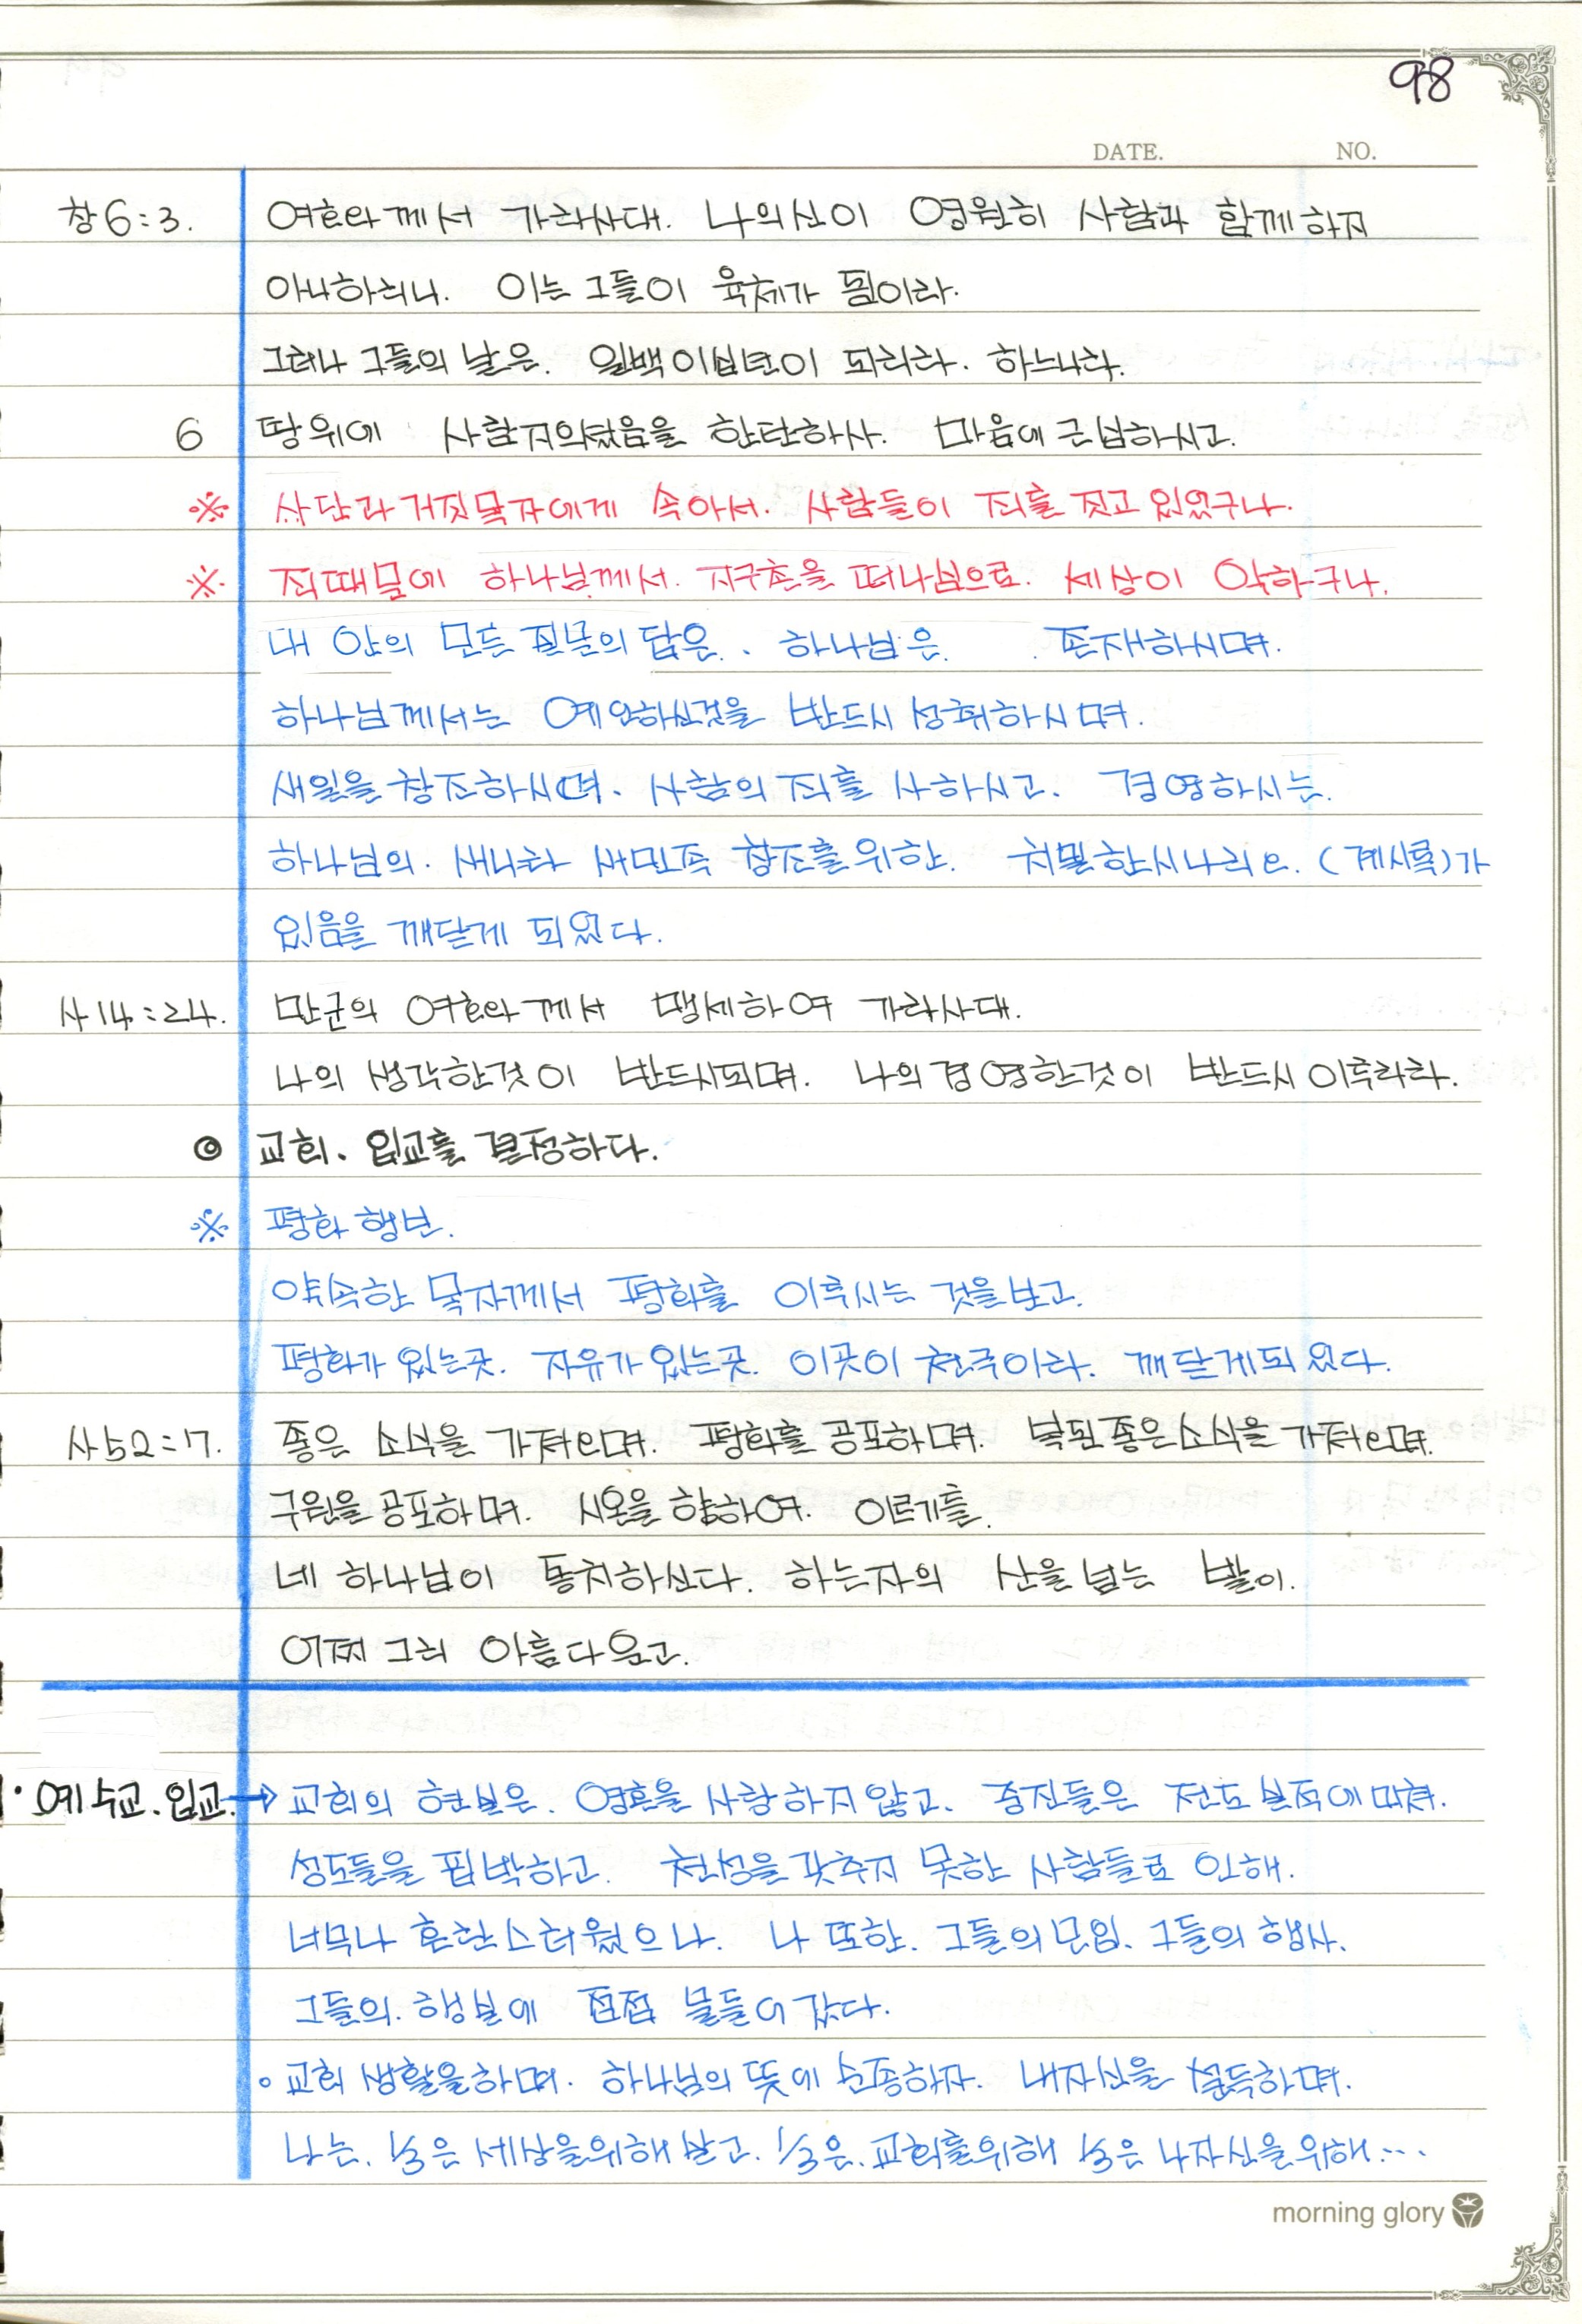 98
DATE. NO.
창6:3. 여호와께서 가라사대. 나의신이 영원히 사람과 함께하지
아니하리니. 이는 그들이 육체가 됨이라.
그러나 그들의 날은. 일백이십년이 되리라. 하느니라.
6 땅위에 사람지으셨음을 한탄하사. 마음에 근심하시고.
※ 사단과 거짓목자에게 속아서. 사람들이 죄를 짓고 있었구나.
※. 죄때문에 하나님께서. 지구촌을 떠나심으로. 세상이 악하구나.
내 안의 모든 질문의 답은. . 하나님은. . 존재하시며.
하나님께서는 예언하신것을 반드시 성취하시며.
새일을 창조하시며. 사람의 죄를 사하시고. 경영하시는.
하나님의. 새나라 새민족 창조를위한. 치밀한시나리오. (계시록)가
있음을 깨닫게 되었다.
사14:24. 만군의 여호와께서 맹세하여 가라사대.
나의 생각한것이 반드시되며. 나의경영한것이 반드시이루리라.
◎ 교회. 입교를 결정하다.
※ 평화 행보.
약속한 목자께서 평화를 이루시는 것을보고.
평화가 있는곳. 자유가 있는곳. 이곳이 천국이라. 깨닫게되었다.
사52:7. 좋은 소식을 가져오며. 평화를 공포하며. 복된좋은소식을 가져오며.
구원을 공포하며. 시온을 향하여. 이르기를.
네 하나님이 통치하신다. 하는자의 산을 넘는 발이.
어찌 그리 아름다운고.
· 예수교. 입교. → 교회의 현실은. 영혼을 사랑하지않고. 중진들은 전도 실적에 미쳐.
성도들을 핍박하고. 천성을 갖추지 못한 사람들로 인해.
너무나 혼란스러웠으나. 나 또한. 그들의모임. 그들의 행사.
그들의. 행실에 점점 물들어 갔다.
∘ 교회 생활을하며. 하나님의 뜻에 순종하자. 내자신을 설득하며.
나는. ⅓은 세상을위해 살고. ⅓은. 교회를위해 ⅓은 나자신을 위해...
morning glory